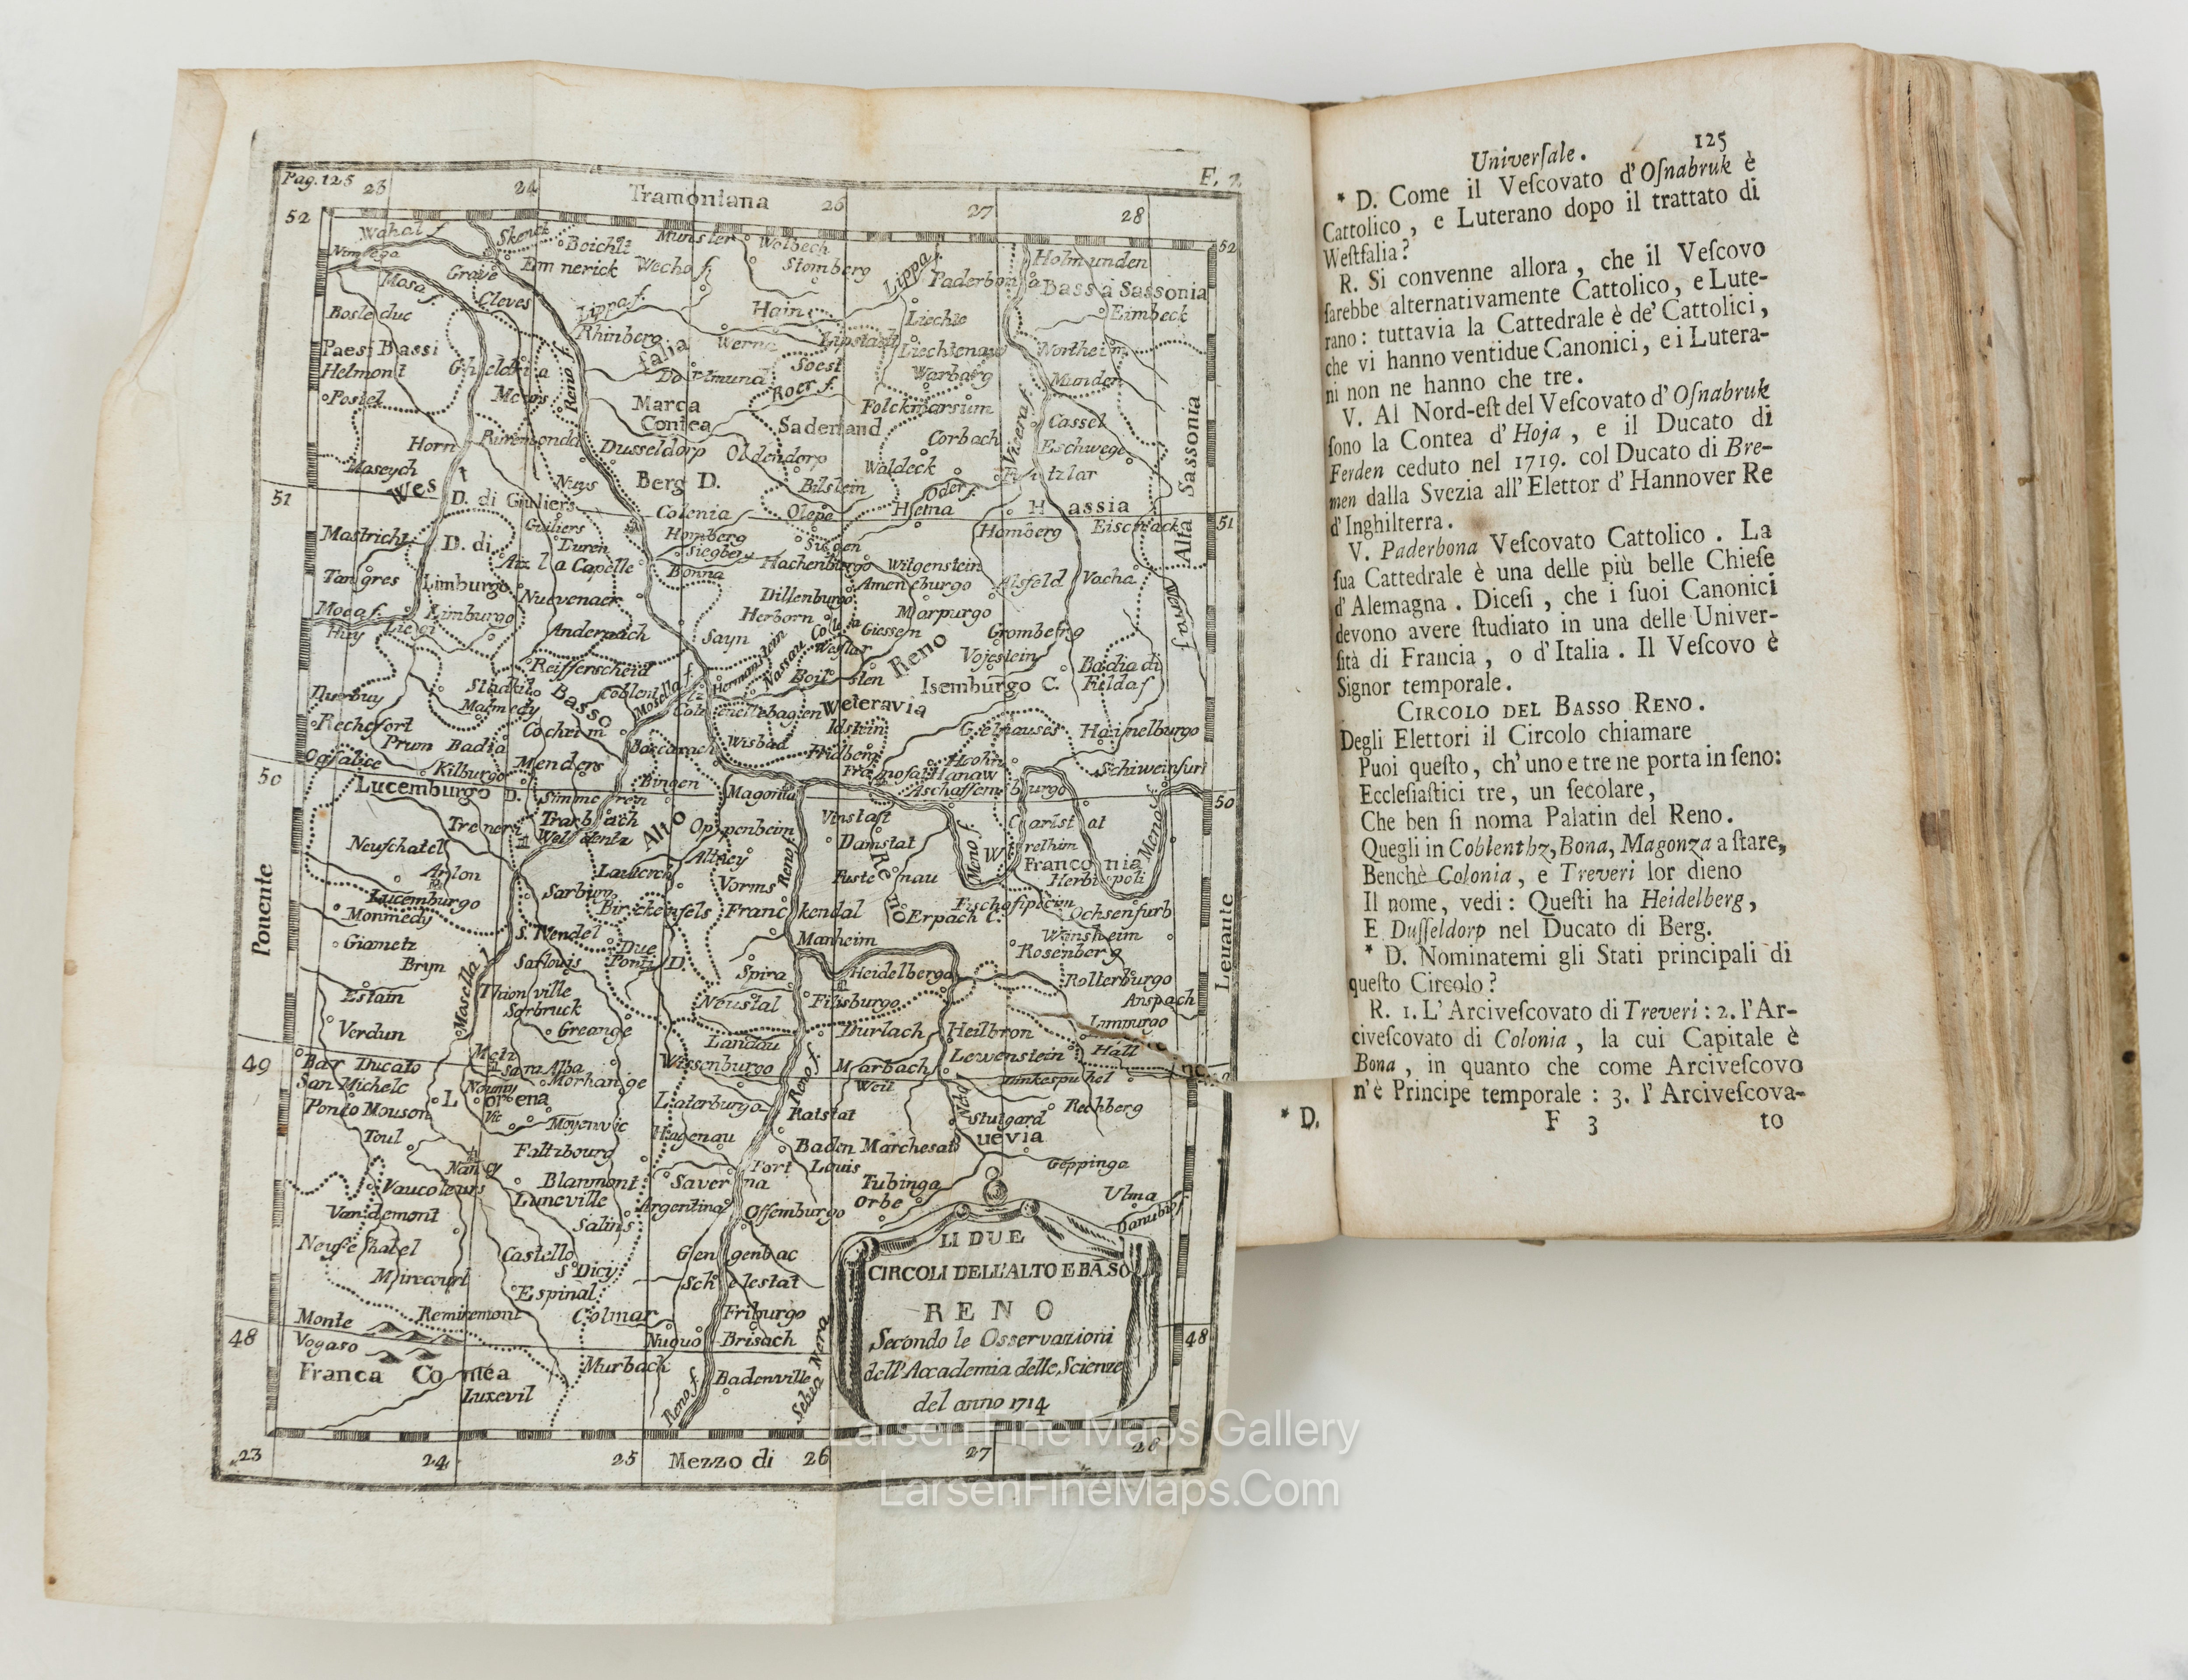 Pag. 125
F. 7
23
24
Tramontana
26
27
28
52
Wahal f.
Skenck
Boichlt
Munster
Wolbech
52
Nimega
Emmerick
Wecho f.
Stomberg
Lippa f.
Paderbona
Holmunden
Mosa f.
Grave
Cleves
Bassa Sassonia
Bosleduc
Lippa f.
Hain
Liechte
Eimbeck
Rhinberg
Werna
Lipstadt
Liechtenaw
Northeim
Paesi Bassi
Gheldria
Reno f.
falia
Soest
Warbarg
Munden
Helmont
Dortmund
Roer f.
Postel
Meurs
Marca
Contea
Folckmarsum
Cassel
Saderland
Visera f.
Horn
Ruremonda
Dusseldorp
Oldendorp
Corbach
Eschwege
Alta Sassonia
Maseych
West
Nuys
Berg D.
Bilstein
Waldeck
Fritzlar
Oder f.
51
D. di Giuliers
Colonia
Olepe
Hetna
Hassia
51
Mastricht
D. di
Limburgo
Giuliers
Duren
Homberg
Siegberg
Siegen
Homberg
Eisenack
Aix la Capelle
Bonna
Hachenburgo
Witgenstein
Tangres
Nuevenaer
Dillenburgo
Ameneburgo
Alsfeld
Vacha
Mosa f.
Limburgo
Herborn
Marpurgo
Huy
Liegi
Andernach
Sayn
Giessen
Gromberg
Werra f.
Reifferscheid
Hermanstein
Nassau
Weslar
Reno
Vojeslein
Badia di
Fulda f.
Stadkil
Basso
Coblentz
Mosella f.
Isemburgo C.
Durbuy
Malmedy
Weteravia
Rechefort
Cocheim
Idstein
Gelnauses
Hamelburgo
Prum Badia
Baccarach
Wisbad
Fridberg
50
Kilburgo
Menders
Bingen
Hanaw
Schiweinfurt
Lucemburgo D.
Magontia
Aschaffemburgo
50
Treveri
Trarbach
Alto
Oppenheim
Vinstatt
Carlstat
Neufchatel
Veldentz
Damstat
Meno f.
Meno f.
Arlon
Lautereck
Altzey
Franconia
Herbipoli
Lucemburgo
Sarburg
Vorms
Reno f.
Reno
Monmedy
Birckenfels
Franckendal
Erpach C.
Ochsenfurb
Ponente
Giametz
S. Wendel
Due
Ponti D.
Manheim
Winsheim
Rosenberg
Levante
Bryn
Sarlouis
Spira
Heidelberga
Rolterburgo
Estain
Mosella f.
Thionville
Neustat
Filisburgo
Anspach
Sarbruck
Verdun
Greange
Landau
Durlach
Heilbron
Limpurgo
49
Bar Ducato
Metz
Sara Alba
Wissenburgo
Marbach
Lewenstein
Hall
San Michele
Nomny
Morhange
Weil
Dinkespuhel
Ponto Mouson
Lorena
Laterburgo
Reno f.
Ratstat
Rechberg
Vic
Moyenvic
Stutgard
Toul
Haguenau
Baden Marchesato
Suevia
Faltzbourg
Fort Louis
Geppinga
Nancy
Blanmont
Saverna
Tubinga
Vaucoleurs
Luneville
Argentina
Offemburgo
Orbe
Ulma
Vaudemont
Salins
Danubio f.
Neufchatel
Castello
Gengenbac
S. Dicy
Mirecourt
Schelestat
Espinal
Monte
Vogaso
Remiremont
Colmar
Friburgo
48
Nuovo Brisach
48
Franca Contea
Murbach
Reno f.
Badenville
Selva Nera
Luxevil
LI DUE
CIRCOLI DELL'ALTO E BASO
RENO
Secondo le Osservazioni
dell'Accademia delle Scienze
del anno 1714
23
24
25
Mezzo di
26
27
28
Universale.
125
* D. Come il Vescovato d'Osnabruk è
Cattolico, e Luterano dopo il trattato di
Westfalia?
R. Si convenne allora, che il Vescovo
sarebbe alternativamente Cattolico, e Lute-
rano: tuttavia la Cattedrale è de' Cattolici,
che vi hanno ventidue Canonici, e i Lutera-
ni non ne hanno che tre.
V. Al Nord-est del Vescovato d'Osnabruk
sono la Contea d'Hoja, e il Ducato di
Ferden ceduto nel 1719. col Ducato di Bre-
men dalla Svezia all'Elettor d'Hannover Re
d'Inghilterra.
V. Paderbona Vescovato Cattolico. La
sua Cattedrale è una delle più belle Chiese
d'Alemagna. Dicesi, che i suoi Canonici
devono avere studiato in una delle Univer-
sità di Francia, o d'Italia. Il Vescovo è
Signor temporale.
CIRCOLO DEL BASSO RENO.
Degli Elettori il Circolo chiamare
Puoi questo, ch'uno e tre ne porta in seno:
Ecclesiastici tre, un secolare,
Che ben si noma Palatin del Reno.
Quegli in Coblenthz, Bona, Magonza a stare,
Benchè Colonia, e Treveri lor dieno
Il nome, vedi: Questi ha Heidelberg,
E Dusseldorp nel Ducato di Berg.
* D. Nominatemi gli Stati principali di
questo Circolo?
R. 1. L'Arcivescovato di Treveri: 2. l'Ar-
civescovato di Colonia, la cui Capitale è
Bona, in quanto che come Arcivescovo
n'è Principe temporale: 3. l'Arcivescova-
F 3
to
* D.
Larsen Fine Maps Gallery
LarsenFineMaps.Com